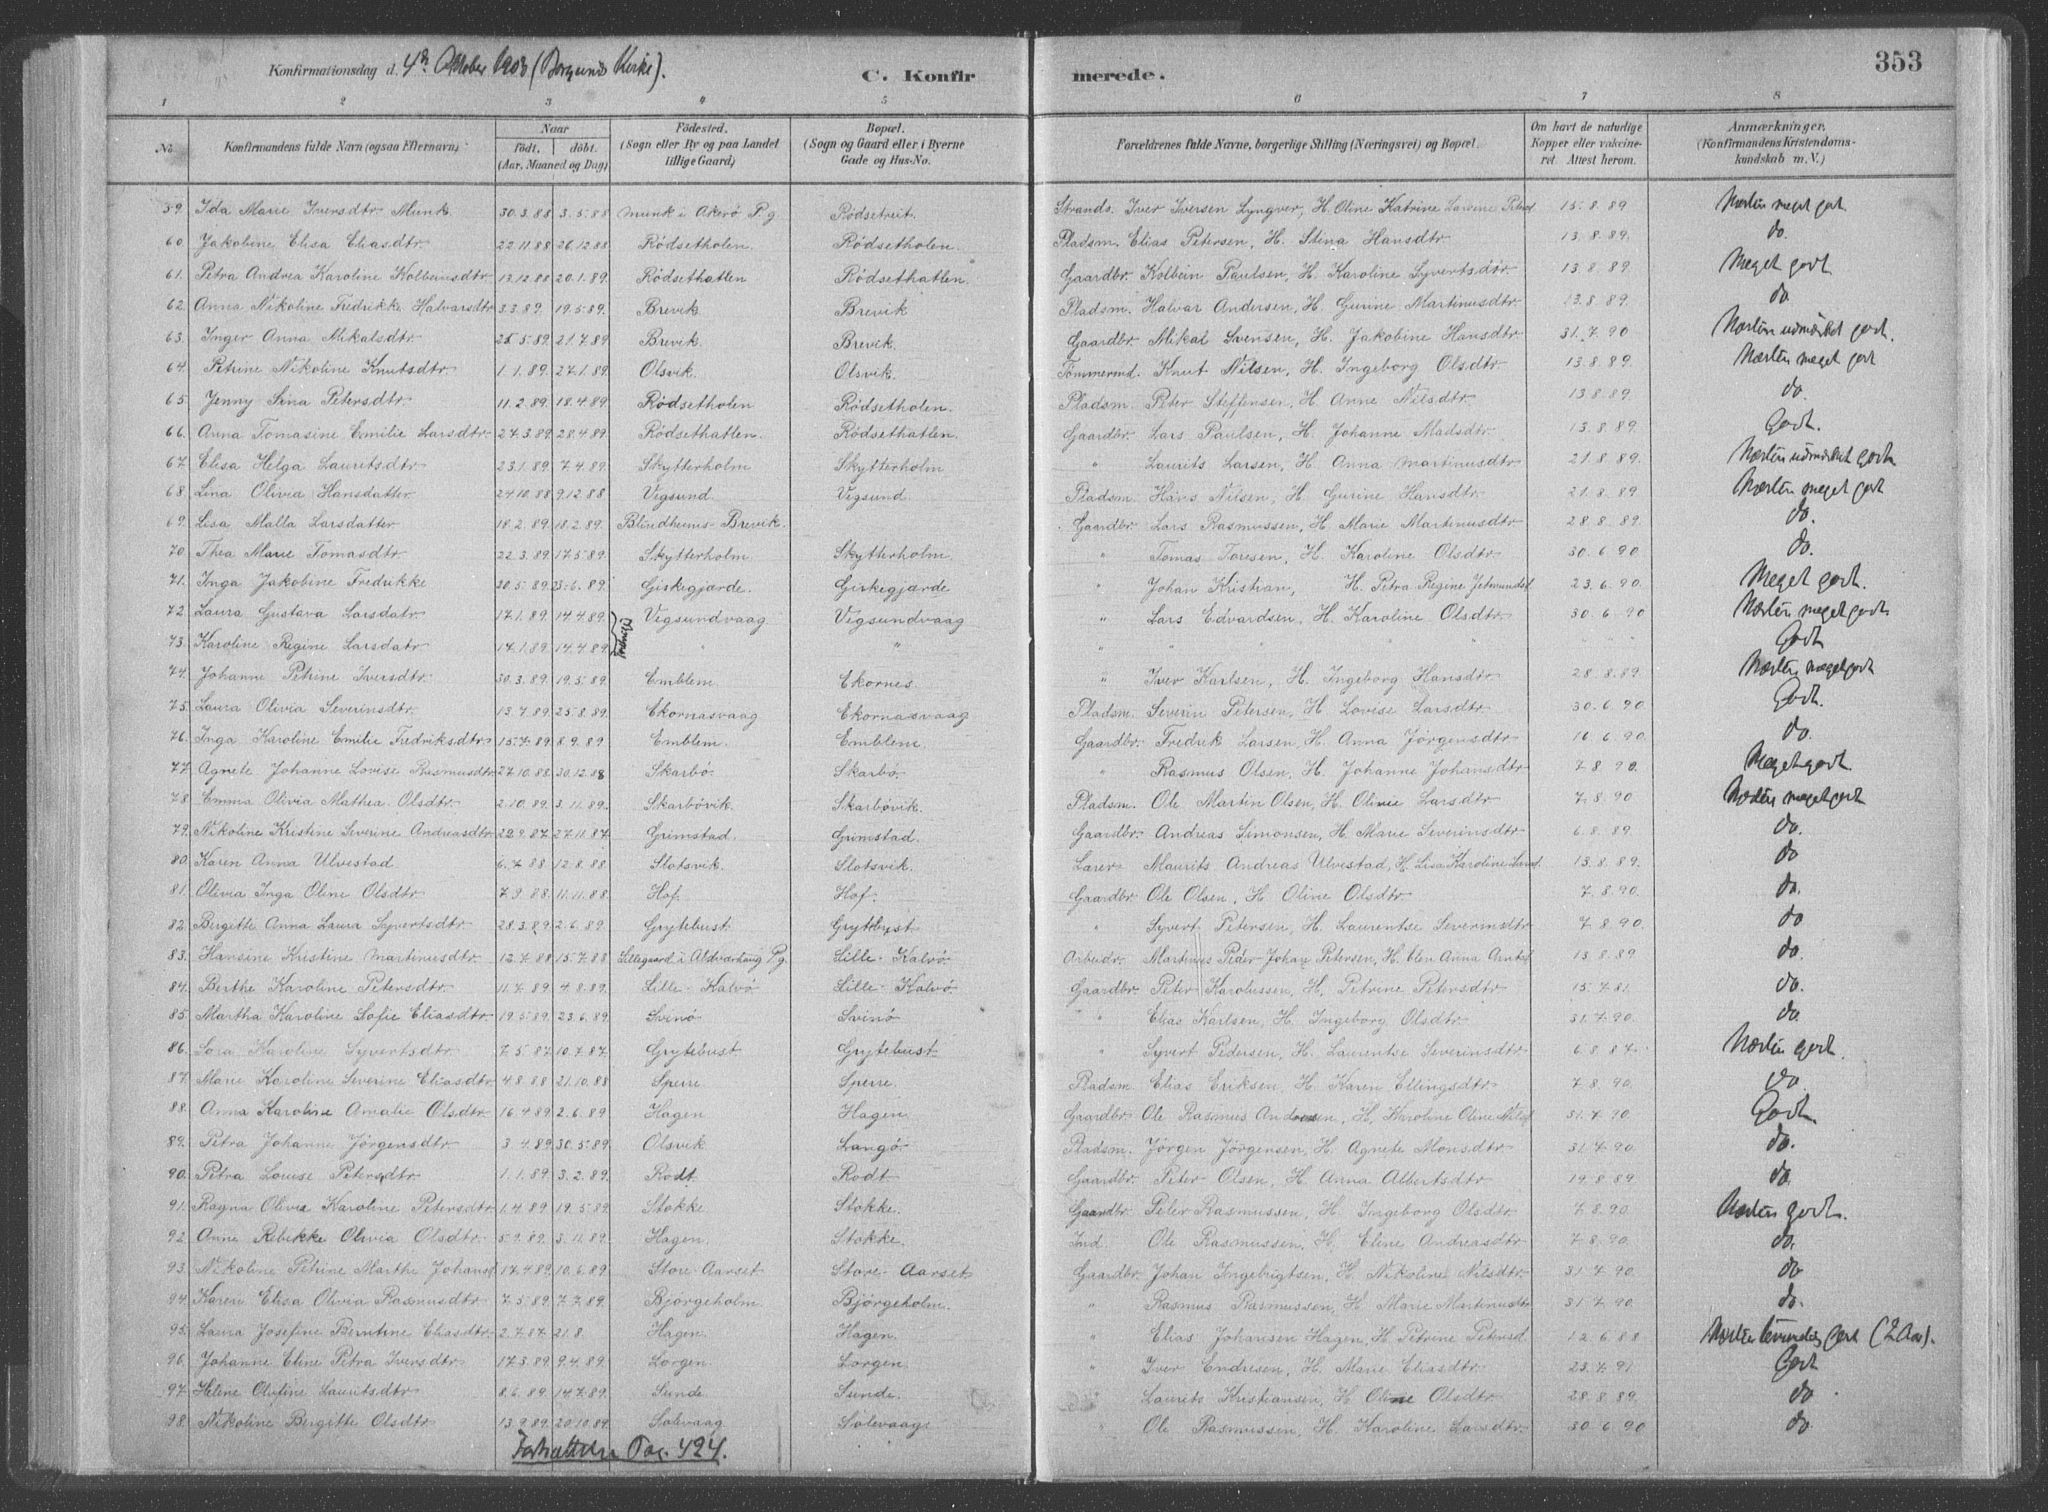 Konfirmationsdag d. 4de Oktober 1903 (Borgunds Kirke). C. Konfirmerede. 353
1 2 3 4 5 6 7 8
No. Konfirmandens fulde Navn (ogsaa Efternavn) Naar født, døbt. (Aar, Maaned og Dag) Fødested. (Sogn eller By og paa Landet tillige Gaard) Bopæl. (Sogn og Gaard eller i Byerne Gade og Hus-No. Forældrenes fulde Navne, borgerlige Stilling (Næringsvei) og Bopæl. Om havt de naturlige Kopper eller vakcineret. Attest herom. Anmærkninger. (Konfirmandens Kristendomskundskab m. V.)
59. Ida Marie Iversdtr Munk 30.3.88 3.5.88 Munk i Akerø P.g. Rödsetreit. Strands. Iver Iversen Lyngver, H. Oline Katrine Lovise Petersd 15.8.89 Næsten meget godt
60. Jakobine Elisa Eliasdtr. 22.11.88 26.12.88 Rödsetholen. Rödsetholen. Pladsm. Elias Petersen, H. Stina Hansdtr 13.8.89. do.
61. Petra Andrea Karoline Kolbeinsdtr 13.12.88 20.1.89. Rödsethatlen Rödsethatlen. Gaardbr. Kolbein Paulsen, H. Karoline Syvertsdtr 13.8.89. Meget godt
62. Anna Nikoline Fredrikke Halvarsdtr 3.3.89. 19.5.89. Brevik Brevik Pladsm. Halvar Andersen, H. Gurine Martinusdtr. 13.8.89 do.
63. Inger Anna Mikalsdtr 25.5.89. 21.7.89 Brevik. Brevik. Gaardbr. Mikal Svensen, H. Jakobine Hansdtr 31.7.90 Næsten udmærket godt.
64. Petrine Nikoline Knutsdtr 1.1.89. 27.1.89. Olsvik. Olsvik. Tömmermd. Knut Nilsen, H. Ingeborg Olsdtr. 13.8.89 Næsten meget godt
65. Jenny Lina Petersdtr. 11.2.89. 18.4.89 Rödsetholen Rödsetholen. Pladsm. Peter Steffensen, H. Anne Nilsdtr. 13.8.89. do.
66. Anna Tomasine Emilie Larsdtr. 27.3.89. 28.4.89 Rödsethatlen. Rödsethatlen. Gaardbr. Lars Paulsen, H. Johanne Madsdtr. 13.8.89. Godt.
67. Elisa Helga Lauritsdtr 23.1.89. 7.4.89. Skytterholm Skytterholm " Laurits Larsen, H. Anna Martinusdtr 21.8.89. Næsten udmærket godt
68. Lina Olivia Hansdatter 24.10.88 9.12.88 Vigsund. Vigsund Pladsm. Hans Nilsen, H. Gurine Hansdtr. 21.8.89 Næsten meget godt
69. Lisa Malla Larsdatter 18.2.89. 18.2.89. Blindheims-Brevik. Gaardbr. Lars Rasmussen, H. Marie Martinusdtr 28.8.89. do.
70. Thea Marie Tomasdtr 22.3.89. 17.5.89. Skytterholm Skytterholm. " Tomas Toresen, H. Karoline Olsdtr 30.6.90 do.
71. Inga Jakobine Fredrikke 20.5.89. 23.6.89. Giskegjærde. Giskegjærde " Johan Kristian, H. Petra Regine Jetmundsd 23.6.90. Meget godt.
72. Laura Gustava Larsdatr 17.1.89. 14.4.89. Vigsundvaag Vigsundvaag " Lars Edvardsen, H. Karoline Olsdtr. 30.6.90 Næsten meget godt
73. Karoline Regine Larsdatr 17.1.89. 14.4.89. Tvillinger " " " " " Godt
74. Johanne Petrine Iversdtr. 30.3.89. 19.5.89. Emblem. Ekornes. " Iver Karlsen, H. Ingeborg Hansdtr 28.8.89. Næsten meget godt
75. Laura Olivia Severinsdtr. 13.7.89. 25.8.89. Ekornæsvaag Ekornæsvaag Pladsm. Severin Petersen, H. Lovise Larsdtr 30.6.90 Godt.
76. Inga Karoline Emilie Fredriksdtr 15.7.89. 8.9.89 Emblem. Emblem. Gaardbr. Fredrik Larsen, H. Anna Jörgensdtr 16.6.90. do.
77. Agnete Johanne Lovise Rasmusdtr 27.10.88. 30.12.88 Skarbö. Skarbö. " Rasmus Olsen, H. Johanne Johansdtr 7.8.90. Meget godt
78. Emma Olivia Mathea Olsdtr 2.10.89. 3.11.89. Skarbövik. Skarbövik. Pladsm. Ole Martin Olsen, H. Olivie Larsdtr 7.8.90 Næsten meget godt
79. Nikoline Kristine Severine Andreasdtr 22.9.87. 27.11.87. Grimstad. Grimstad. Gaardbr. Andreas Simonsen, H. Marie Severinsdtr 6.8.89. do.
80. Karen Anna Ulvestad 6.7.88 12.8.88 Slotsvik. Slotsvik. Lærer Maurits Andreas Ulvestad, H. Lisa Karoline Larsd. 13.8.89. do
81. Olivia Inga Oline Olsdtr 7.9.88 11.11.88 Hof. Hof. Gaardbr. Ole Olsen, H. Oline Olsdtr. 7.8.90. do.
82. Birgitte Anna Laura Syvertsdtr 28.3.89. 2.6.89. Grytebust Grytebust " Syvert Petersen, H. Laurentse Severinsdtr 7.8.90. do
83. Hansine Kristine Martinusdtr 12.7.88 15.7.88 Lillegaard i Aldvarhaug P.g. Lille-Kalvö. Arbeidr. Martinus Peder Johan Petersen, H. Elen Anna Arntsd 13.8.89 do.
84. Berthe Karoline Petersdtr. 11.7.89. 4.8.89. Lille-Kalvö Lille-Kalvö Gaardbr. Peter Karolussen, H. Petrine Petersdtr 15.7.81. do.
85. Martha Karoline Sofie Eliasdtr. 19.5.89. 23.6.89. Svinö Svinö " Elias Karlsen, H. Ingeborg Olsdtr 31.7.90. do
86. Lora Karoline Syvertsdtr 7.5.87. 10.7.87. Grytebust Grytebust " Syvert Pedersen, H. Laurentse Severinsdtr 6.8.87. Næsten godt.
87. Marie Karoline Severine Eliasdtr 4.8.88 21.10.88 Sperre Sperre. Pladsm. Elias Eriksen, H. Karen Ellingsdtr 7.8.90. do
88. Anna Karoline Amalie Olsdtr 16.4.89. 2.6.89. Hagen Hagen. Gaardbr Ole Rasmus Andersen, H. Karoline Oline Nilsd 31.7.90. Godt
89. Petra Johanne Jörgensdtr 3.4.89. 30.5.89. Olsvik Langö. Pladsm. Jörgen Jörgensen, H. Agnete Monsdtr 31.7.90. do.
90. Petra Louise Petersdtr 1.1.89. 3.2.89. Rödt Rödt Gaardbr. Peter Olsen, H. Anna Albertsdtr 19.8.89 do.
91. Ragna Olivia Karoline Petersdtr 1.4.89. 19.5.89. Stokke Stokke. Gaardbr. Peter Rasmussen, H. Ingeborg Olsdtr 7.8.90. Næsten godt.
92. Anne Rebikke Olivia Olsdtr. 5.9.89. 3.11.89. Hagen. Stokke. Ind. Ole Rasmussen, H. Eline Andreasdtr. 7.8.90. do.
93. Nikoline Petrine Marthe Johansd 17.4.89. 10.6.89 Store-Aarset Store-Aarset Gaardbr. Johan Ingebrigtsen, H. Nikoline Nilsdtr. 31.7.90. do
94. Karen Elisa Olivia Rasmusdtr 7.5.89. 7.7.89. Bjørgeholm. Bjørgeholm. " Rasmus Rasmussen, H. Marie Martinusdtr 31.7.90. do.
95. Laura Josefine Berntine Eliasdtr 2.7.87. 21.8. Hagen. Hagen. " Elias Johansen Hagen, H. Petrine Petersd 12.6.88 Næsten godt (2 Aar).
96. Johanne Eline Petra Iversdtr 17.3.89. 9.4.89. Lorgen Lorgen " Iver Endresen, H. Marie Eliasdtr 23.7.91. Godt
97. Heline Olufine Lauritsdtr 8.6.89. 14.7.89. Sunde. Sunde. " Laurits Kristiansen, H. Oline Olsdtr. 28.8.89. do
98. Nikoline Birgitte Olsdtr 13.9.89 20.10.89. Solevaag Solevaag " Ole Rasmussen, H. Karoline Larsdtr 30.6.90 do
Fortsættelse Pag. 424.